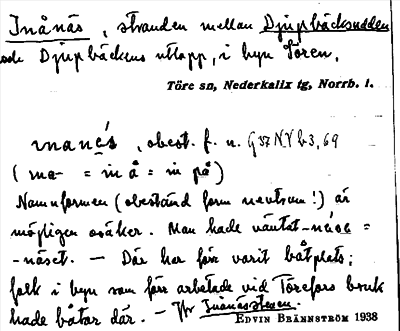 Inånäs, stranden mellan Djupbäcksudden
och Djupbäckens utlopp, i byn Tören.
Töre sn, Nederkalix tg, Norrb. l.
, obest. f. n. G 37 NV b 3, 69
( = in å = in på)
Namnformen (obestånd form neutrum!) är
möjligen osäker. Man hade väntat
-näset. — Där har förr varit båtplats;
folk i byn som förr arbetade vid Törefors bruk
hade båtar där. —
EDVIN BRÄNNSTRÖM 1938